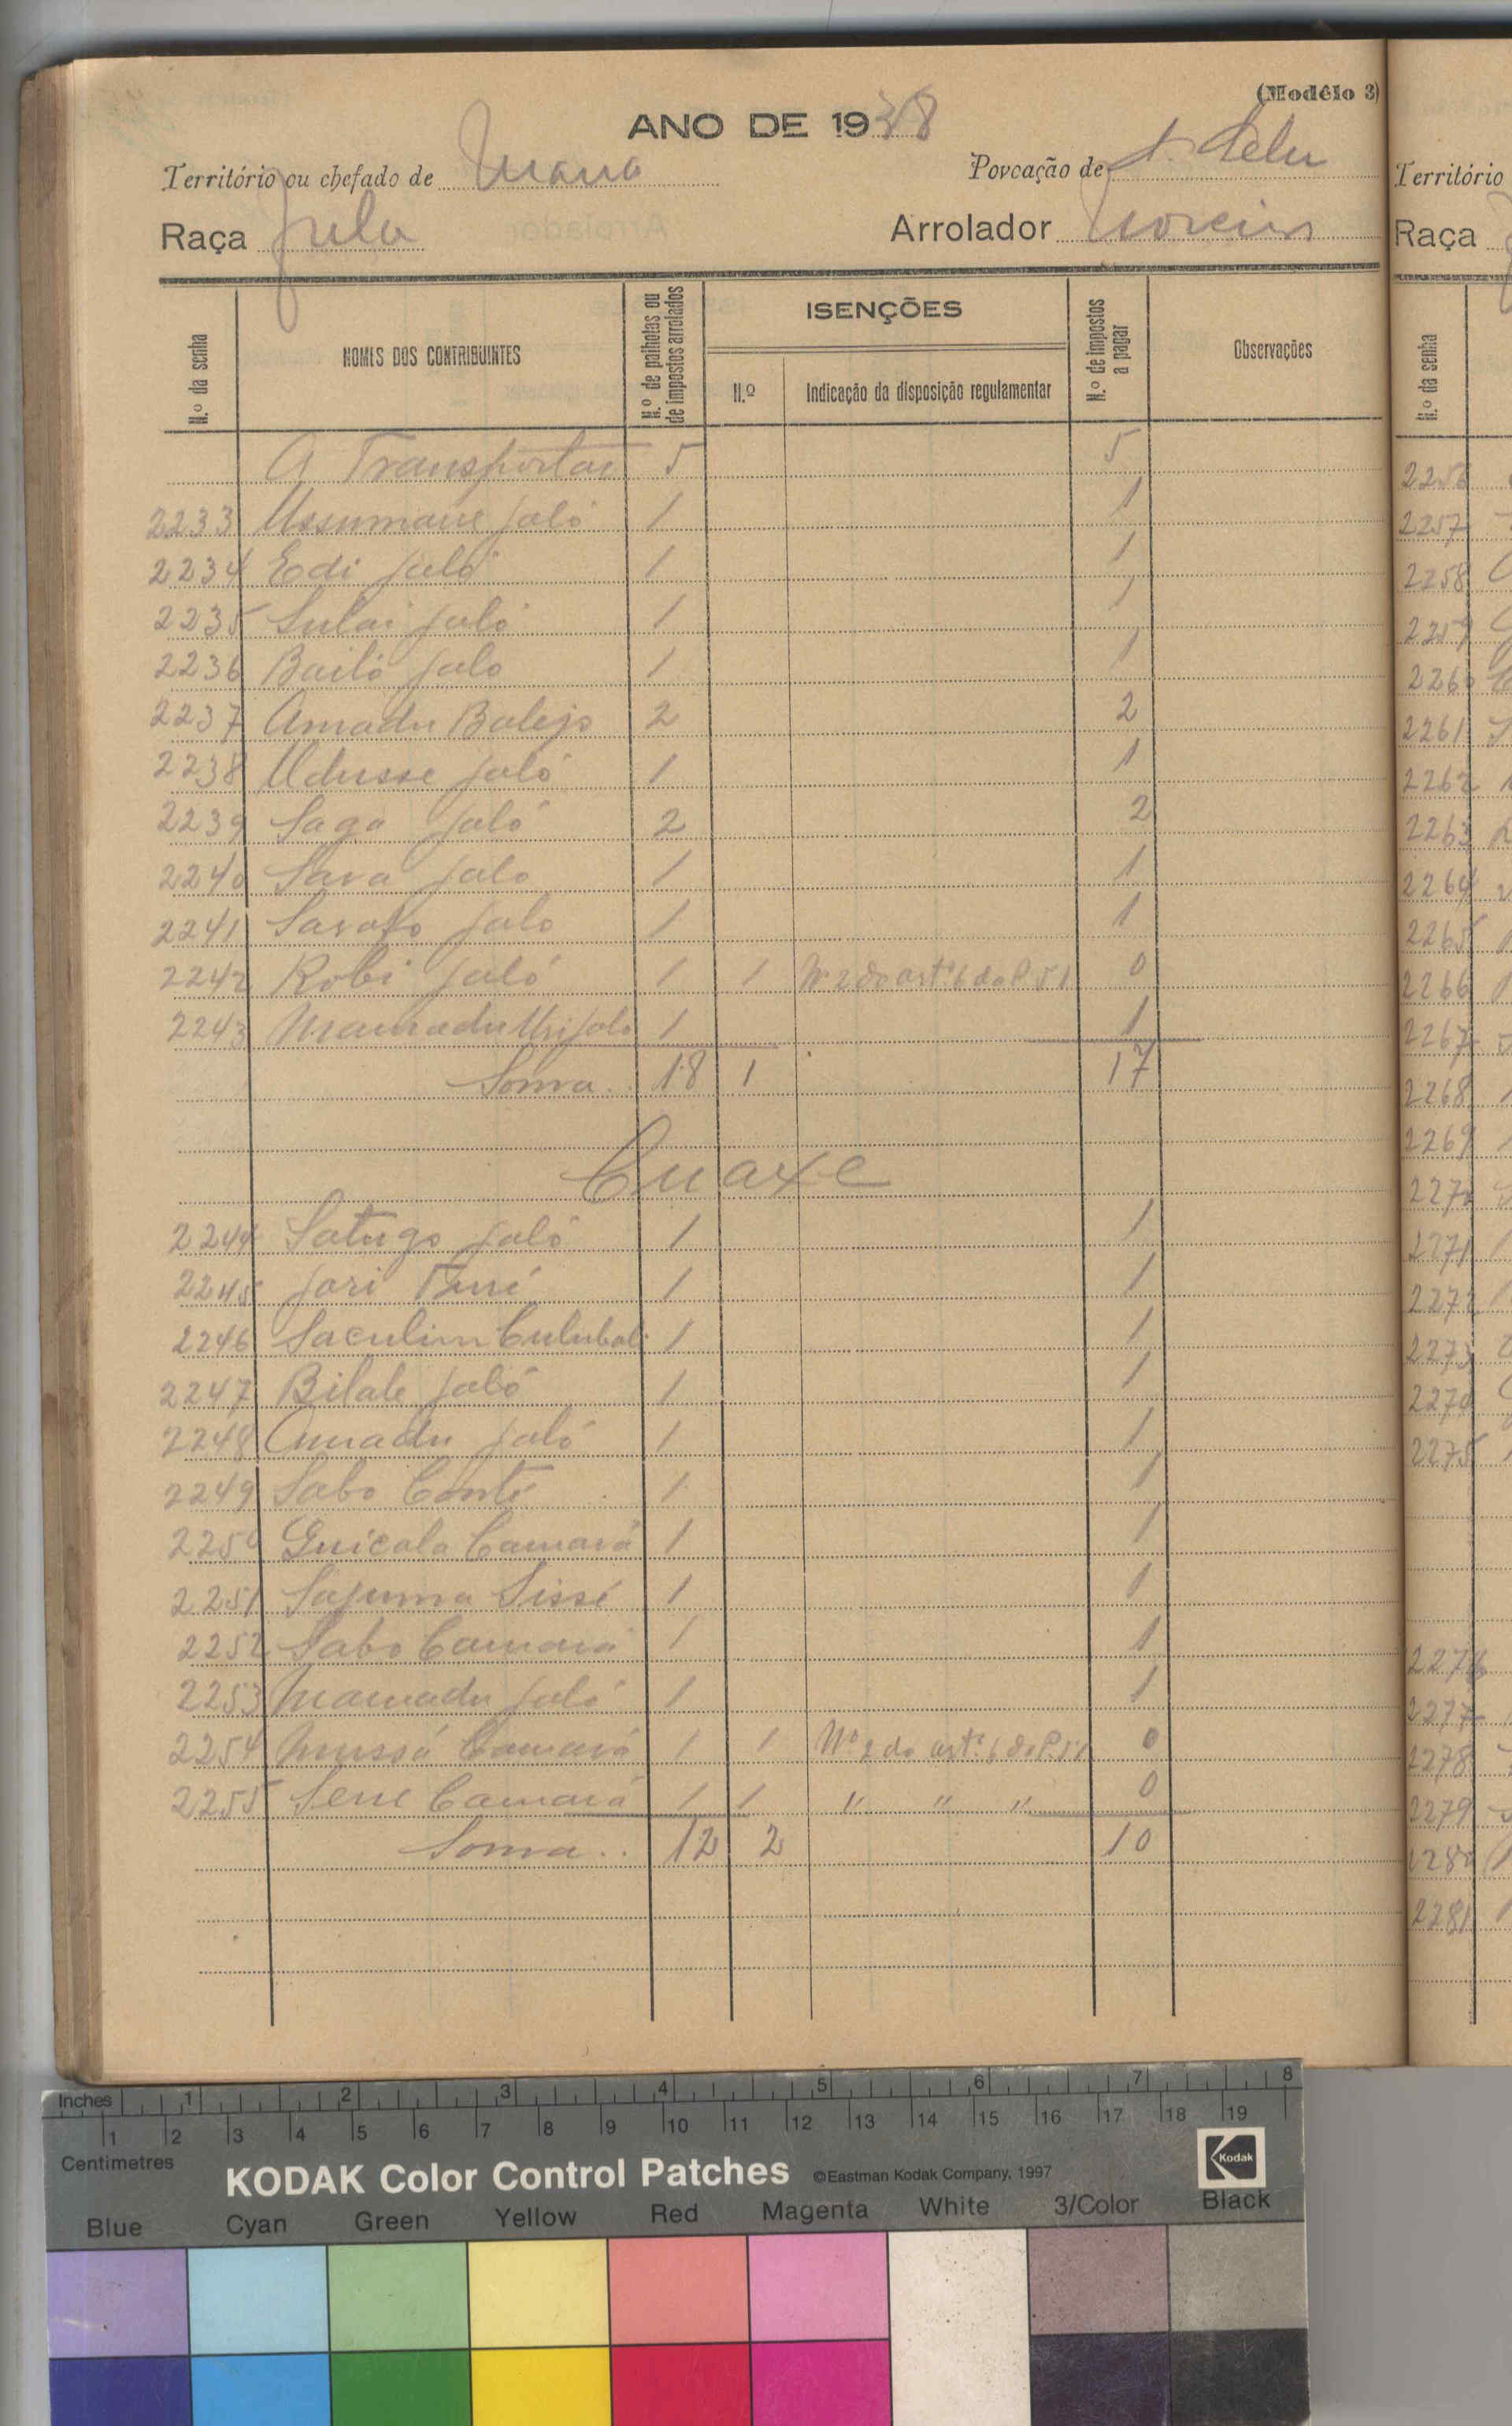 (Modêlo 3)
ANO DE 1938
Território ou chefado de Povoação de
Raça Fula Arrolador Moreira
N.º da senha NOMES DOS CONTRIBUINTES N.º de palhotas ou de impostos arrolados ISENÇÕES N.º Indicação da disposição regulamentar N.º de impostos a pagar Observações
A Transportar 5 5
2233 Ussumane Jaló 1 1
2234 Edi Jaló 1 1
2235 Sulai Jaló 1 1
2236 Bailó Jalo 1 1
2237 Amadu Balejo 2 2
2238 Udusse Jaló 1 1
2239 Saga Jaló 2 2
2240 Sara Jalo 1 1
2241 Jalo 1 1
2242 Robi Jaló 1 1 Nº 2 do artº 6 do P. 51 0
2243 Mamadu Uri Jalo 1 1
Soma.. 18 1 17
Cuaxe
2244 Satugo Jaló 1 1
2245 Jori 1 1
2246 Saculim Culubali 1 1
2247 Bilale Jaló 1 1
2248 Amadu Jaló 1 1
2249 Sabo Conté 1 1
2250 Guicala Camará 1 1
2251 Sajuma Sissé 1 1
2252 Sabo Camará 1 1
2253 Mamadu Jaló 1 1
2254 Mussá Camará 1 1 Nº 2 do artº 6 do P. 51 0
2255 Sene Camará 1 1 " " " 0
Soma.. 12 2 10
Território
Raça
N.º da senha
2256
2257
2258
2259
2260
2261
2262
2263
2264
2265
2266
2267
2268
2269
2270
2271
2272
2273
2274
2275
2276
2277
2278
2279
2280
2281
Inches 1 2 3 4 5 6 7 8
1 2 3 4 5 6 7 8 9 10 11 12 13 14 15 16 17 18 19
Centimetres
KODAK Color Control Patches ©Eastman Kodak Company, 1997 Kodak
Blue Cyan Green Yellow Red Magenta White 3/Color Black